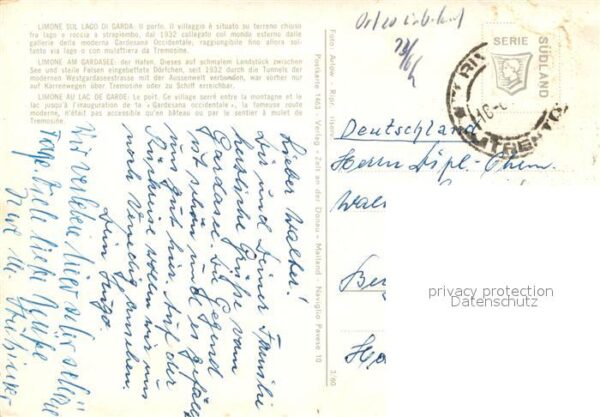 LIMONE SUL LAGO DI GARDA: Il porto. Il villaggio è situato su terreno chiuso
fra lago e roccia a strapiombo, dal 1932 collegato col mondo esterno dalle
gallerie della moderna Gardesana Occidentale, raggiungibile fino allora soltanto via lago o con mulattiera da Tremosine.
LIMONE AM GARDASEE: der Hafen. Dieses auf schmalem Landstück zwischen
See und steile Felsen eingebettete Dörfchen, seit 1932 durch die Tunnels der
modernen Westgardaseestrasse mit der Aussenwelt verbunden, war vorher nur
auf Karrenwegen über Tremosine oder zu Schiff erreichbar.
LIMONE AU LAC DE GARDE: Le port. Ce village serré entre la montagne et le
lac jusqu'à l'inauguration de la «Gardesana occidentale», la fameuse route
moderne, n'était pas accessible qu'en bâteau ou par le sentier à mulet de
Tremosine.
Lieber Walter!
Dir und Deiner Familie
herzliche Grüße vom
Gardasee. Die Gegend
ist schön und es gefällt
uns gut hier. Auf der
Rückreise wollen wir uns
noch Venedig ansehen.
Dein
Wir verleben hier sehr schöne
Tage. Viele liebe Grüße
Foto: Postkarte 1463 - Verlag - Zelt an der Donau - Mailand - Naviglio Pavese 10
3/60
SERIE
SÜDLAND
TRENTO
Deutschland
Herrn Dipl.-Chem.
Wal
Be
privacy protection
Datenschutz
Ha